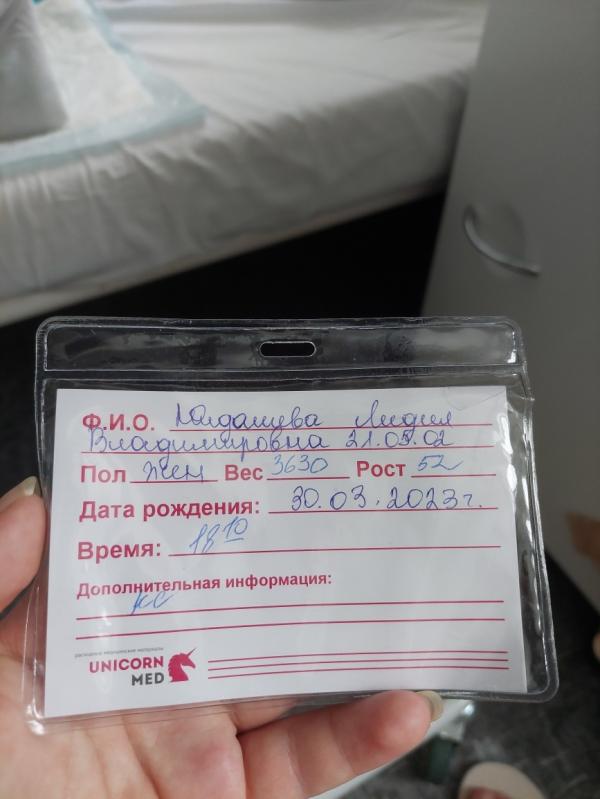 Ф.И.О. Юлдашева Лидия
Владимировна 21.05.02
Пол Жен Вес 3630 Рост 52
Дата рождения: 30.03.2023г.
Время: 18 10
Дополнительная информация:
кс
расходные медицинские материалы
UNICORN
MED